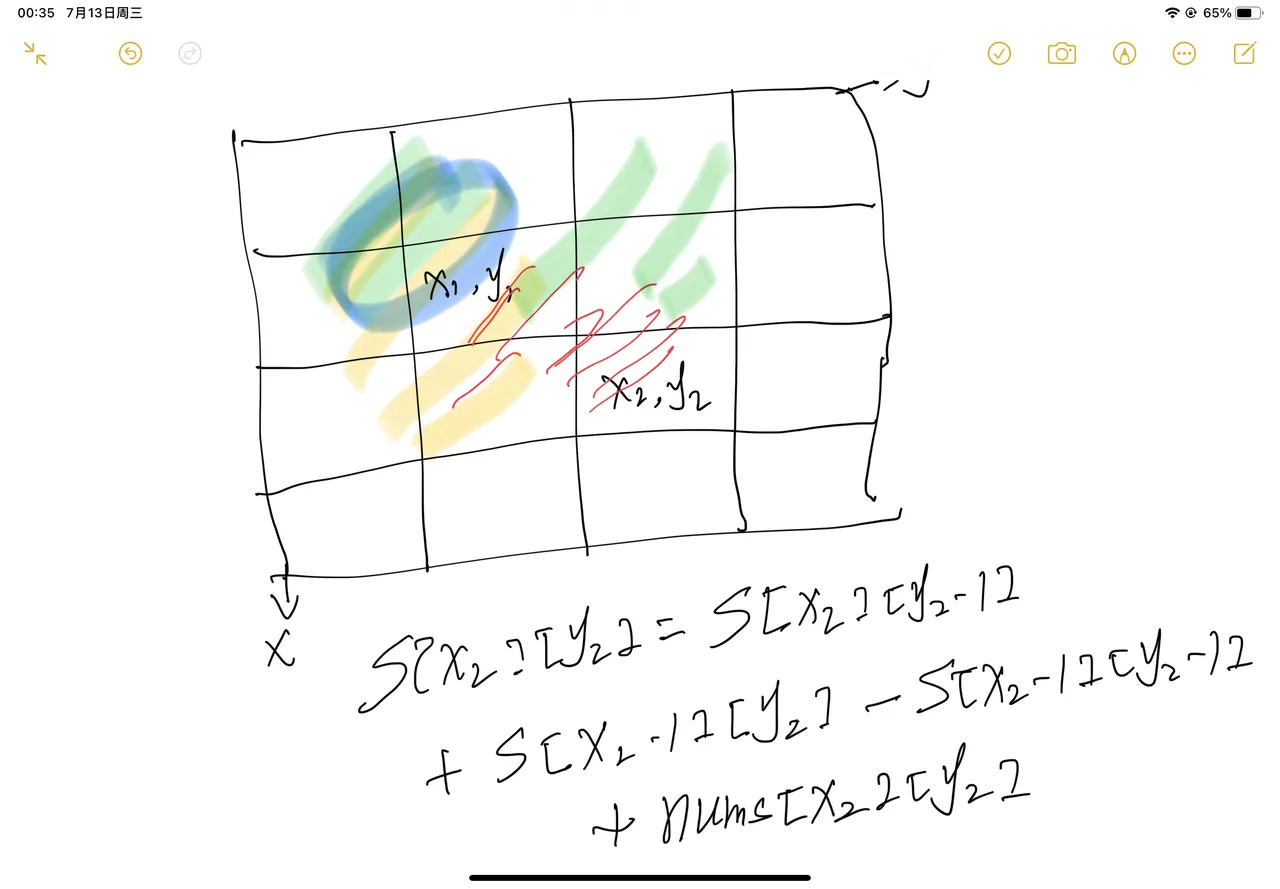 00:35 7月13日周三 65%
x₁,y₁
x₂,y₂
x
S[x₂][y₂] = S[x₂][y₂-1]
+ S[x₂-1][y₂] - S[x₂-1][y₂-1]
+ nums[x₂][y₂]